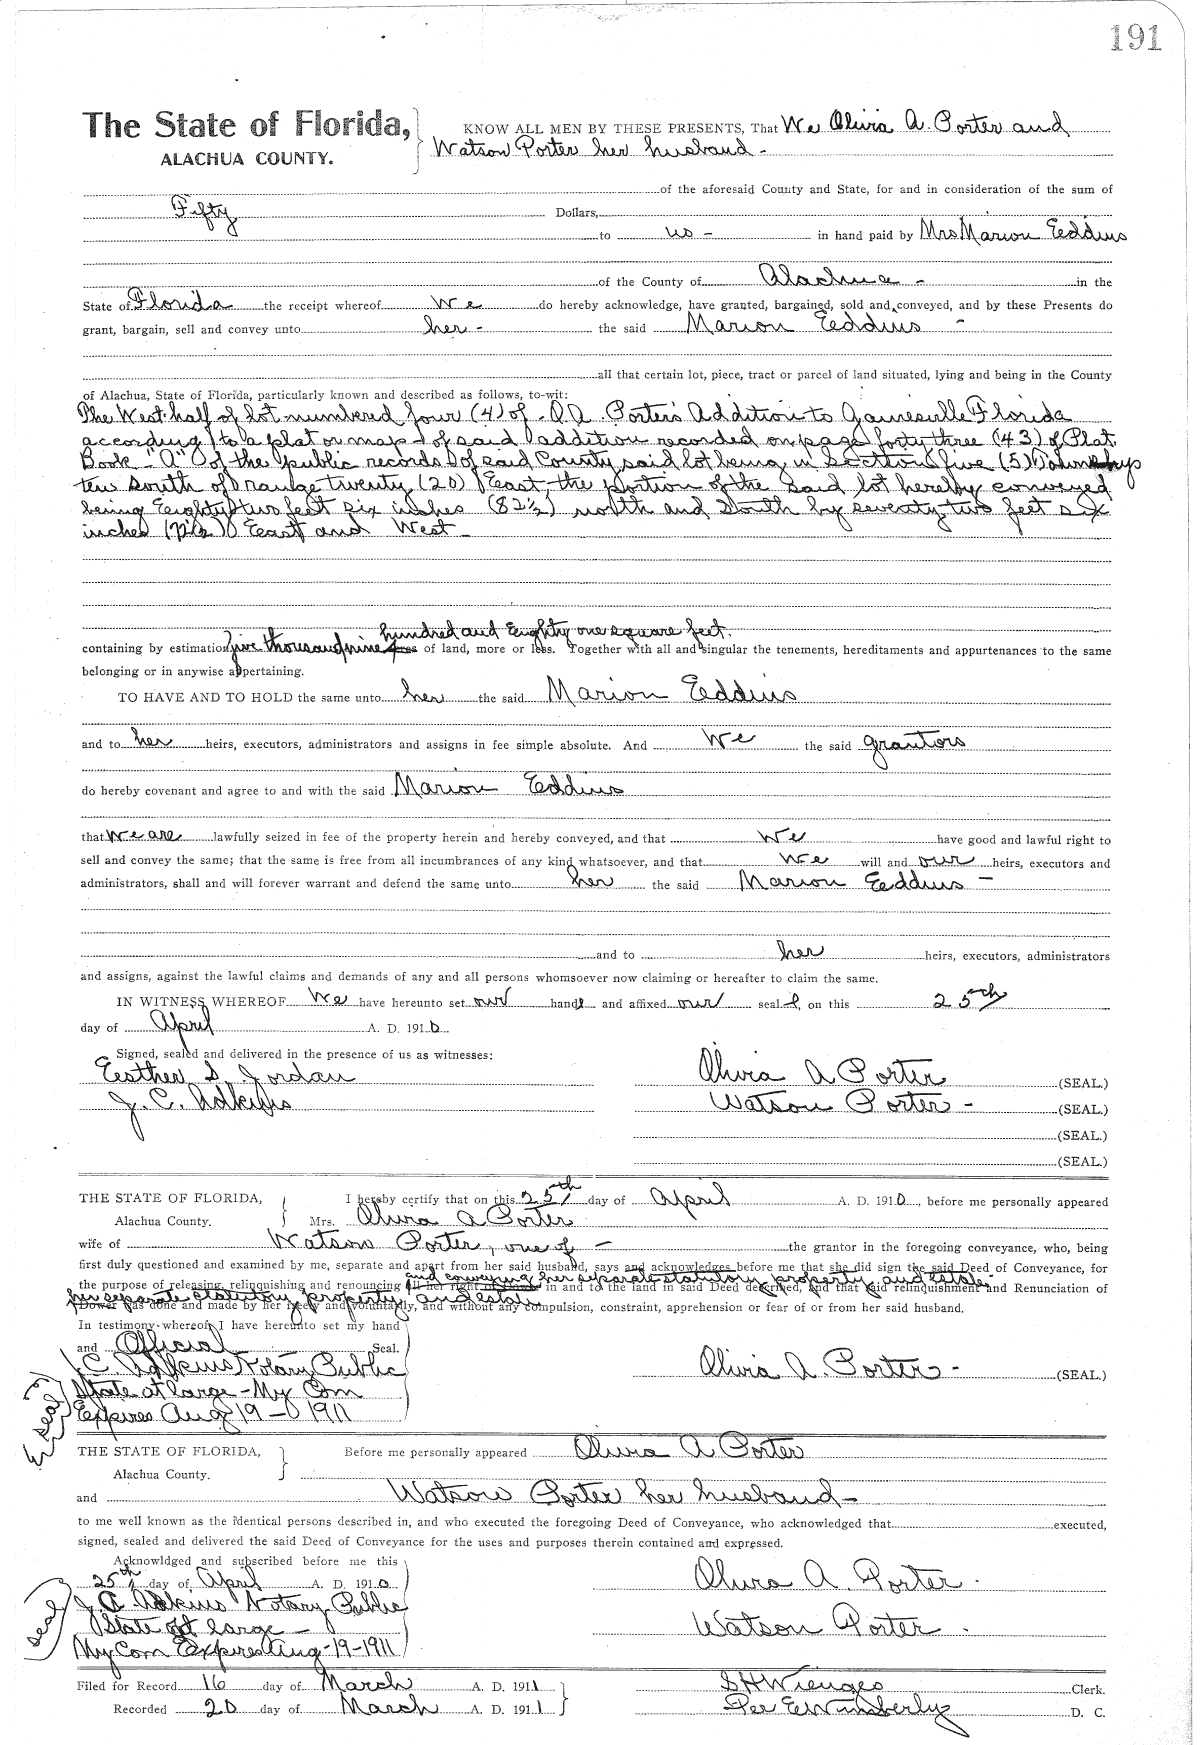 191
The State of Florida, KNOW ALL MEN BY THESE PRESENTS, That We Olivia A. Porter and
ALACHUA COUNTY. Watson Porter her husband -
of the aforesaid County and State, for and in consideration of the sum of
Fifty Dollars,
to us - in hand paid by Mrs Marion Eddins
of the County of Alachua - in the
State of Florida the receipt whereof We do hereby acknowledge, have granted, bargained, sold and conveyed, and by these Presents do
grant, bargain, sell and convey unto her - the said Marion Eddins -
all that certain lot, piece, tract or parcel of land situated, lying and being in the County
of Alachua, State of Florida, particularly known and described as follows, to-wit:
The West half of lot numbered four (4) of O.A. Porter's Addition to Gainesville Florida
according to a plat or map of said addition recorded on page forty three (43) of Plat
Book "A" of the public records of said County, said lot being in Section five (5) Township
ten South of range twenty (20) East, the portion of the said lot hereby conveyed
being Eighty two feet six inches (82½) north and South by seventy two feet six
inches (72½) East and West -
hundred and Eighty one square feet.
containing by estimation five thousand nine acres of land, more or less. Together with all and singular the tenements, hereditaments and appurtenances to the same
belonging or in anywise appertaining.
TO HAVE AND TO HOLD the same unto her the said Marion Eddins
and to her heirs, executors, administrators and assigns in fee simple absolute. And We the said grantors
do hereby covenant and agree to and with the said Marion Eddins
that we are lawfully seized in fee of the property herein and hereby conveyed, and that We have good and lawful right to
sell and convey the same; that the same is free from all incumbrances of any kind whatsoever, and that We will and our heirs, executors and
administrators, shall and will forever warrant and defend the same unto her the said Marion Eddins -
and to her heirs, executors, administrators
and assigns, against the lawful claims and demands of any and all persons whomsoever now claiming or hereafter to claim the same.
IN WITNESS WHEREOF We have hereunto set our hands and affixed our seals, on this 25th
day of April A. D. 1910
Signed, sealed and delivered in the presence of us as witnesses:
Esther S. Jordan Olivia A Porter (SEAL.)
J. C. Adkins Watson Porter - (SEAL.)
(SEAL.)
(SEAL.)
THE STATE OF FLORIDA, I hereby certify that on this 25th day of April A. D. 1910, before me personally appeared
Alachua County. Mrs. Olivia A Porter
wife of Watson Porter, one of - the grantor in the foregoing conveyance, who, being
first duly questioned and examined by me, separate and apart from her said husband, says and acknowledges before me that she did sign the said Deed of Conveyance, for
and conveying her separate statutory property and estate
the purpose of releasing, relinquishing and renouncing all her right of dower in and to the land in said Deed described, and that said relinquishment and Renunciation of
her separate statutory property and estate
Dower was done and made by her freely and voluntarily, and without any compulsion, constraint, apprehension or fear of or from her said husband.
In testimony whereof, I have hereunto set my hand
and Official Seal.
J. C. Adkins Notary Public Olivia A. Porter - (SEAL.)
State at large - My Com
Expires Aug 19 - 1911
seal
THE STATE OF FLORIDA, Before me personally appeared Olivia A Porter
Alachua County.
and Watson Porter her husband -
to me well known as the identical persons described in, and who executed the foregoing Deed of Conveyance, who acknowledged that executed,
signed, sealed and delivered the said Deed of Conveyance for the uses and purposes therein contained and expressed.
Acknowldged and subscribed before me this
25th day of April A. D. 1910 Olivia A. Porter.
J. C. Adkins Notary Public
State at large - Watson Porter.
My Com Expires Aug-19-1911
seal
Filed for Record 16 day of March A. D. 1911 S H Wienges Clerk.
Recorded 20 day of March A. D. 1911 Per E Wimberly D. C.